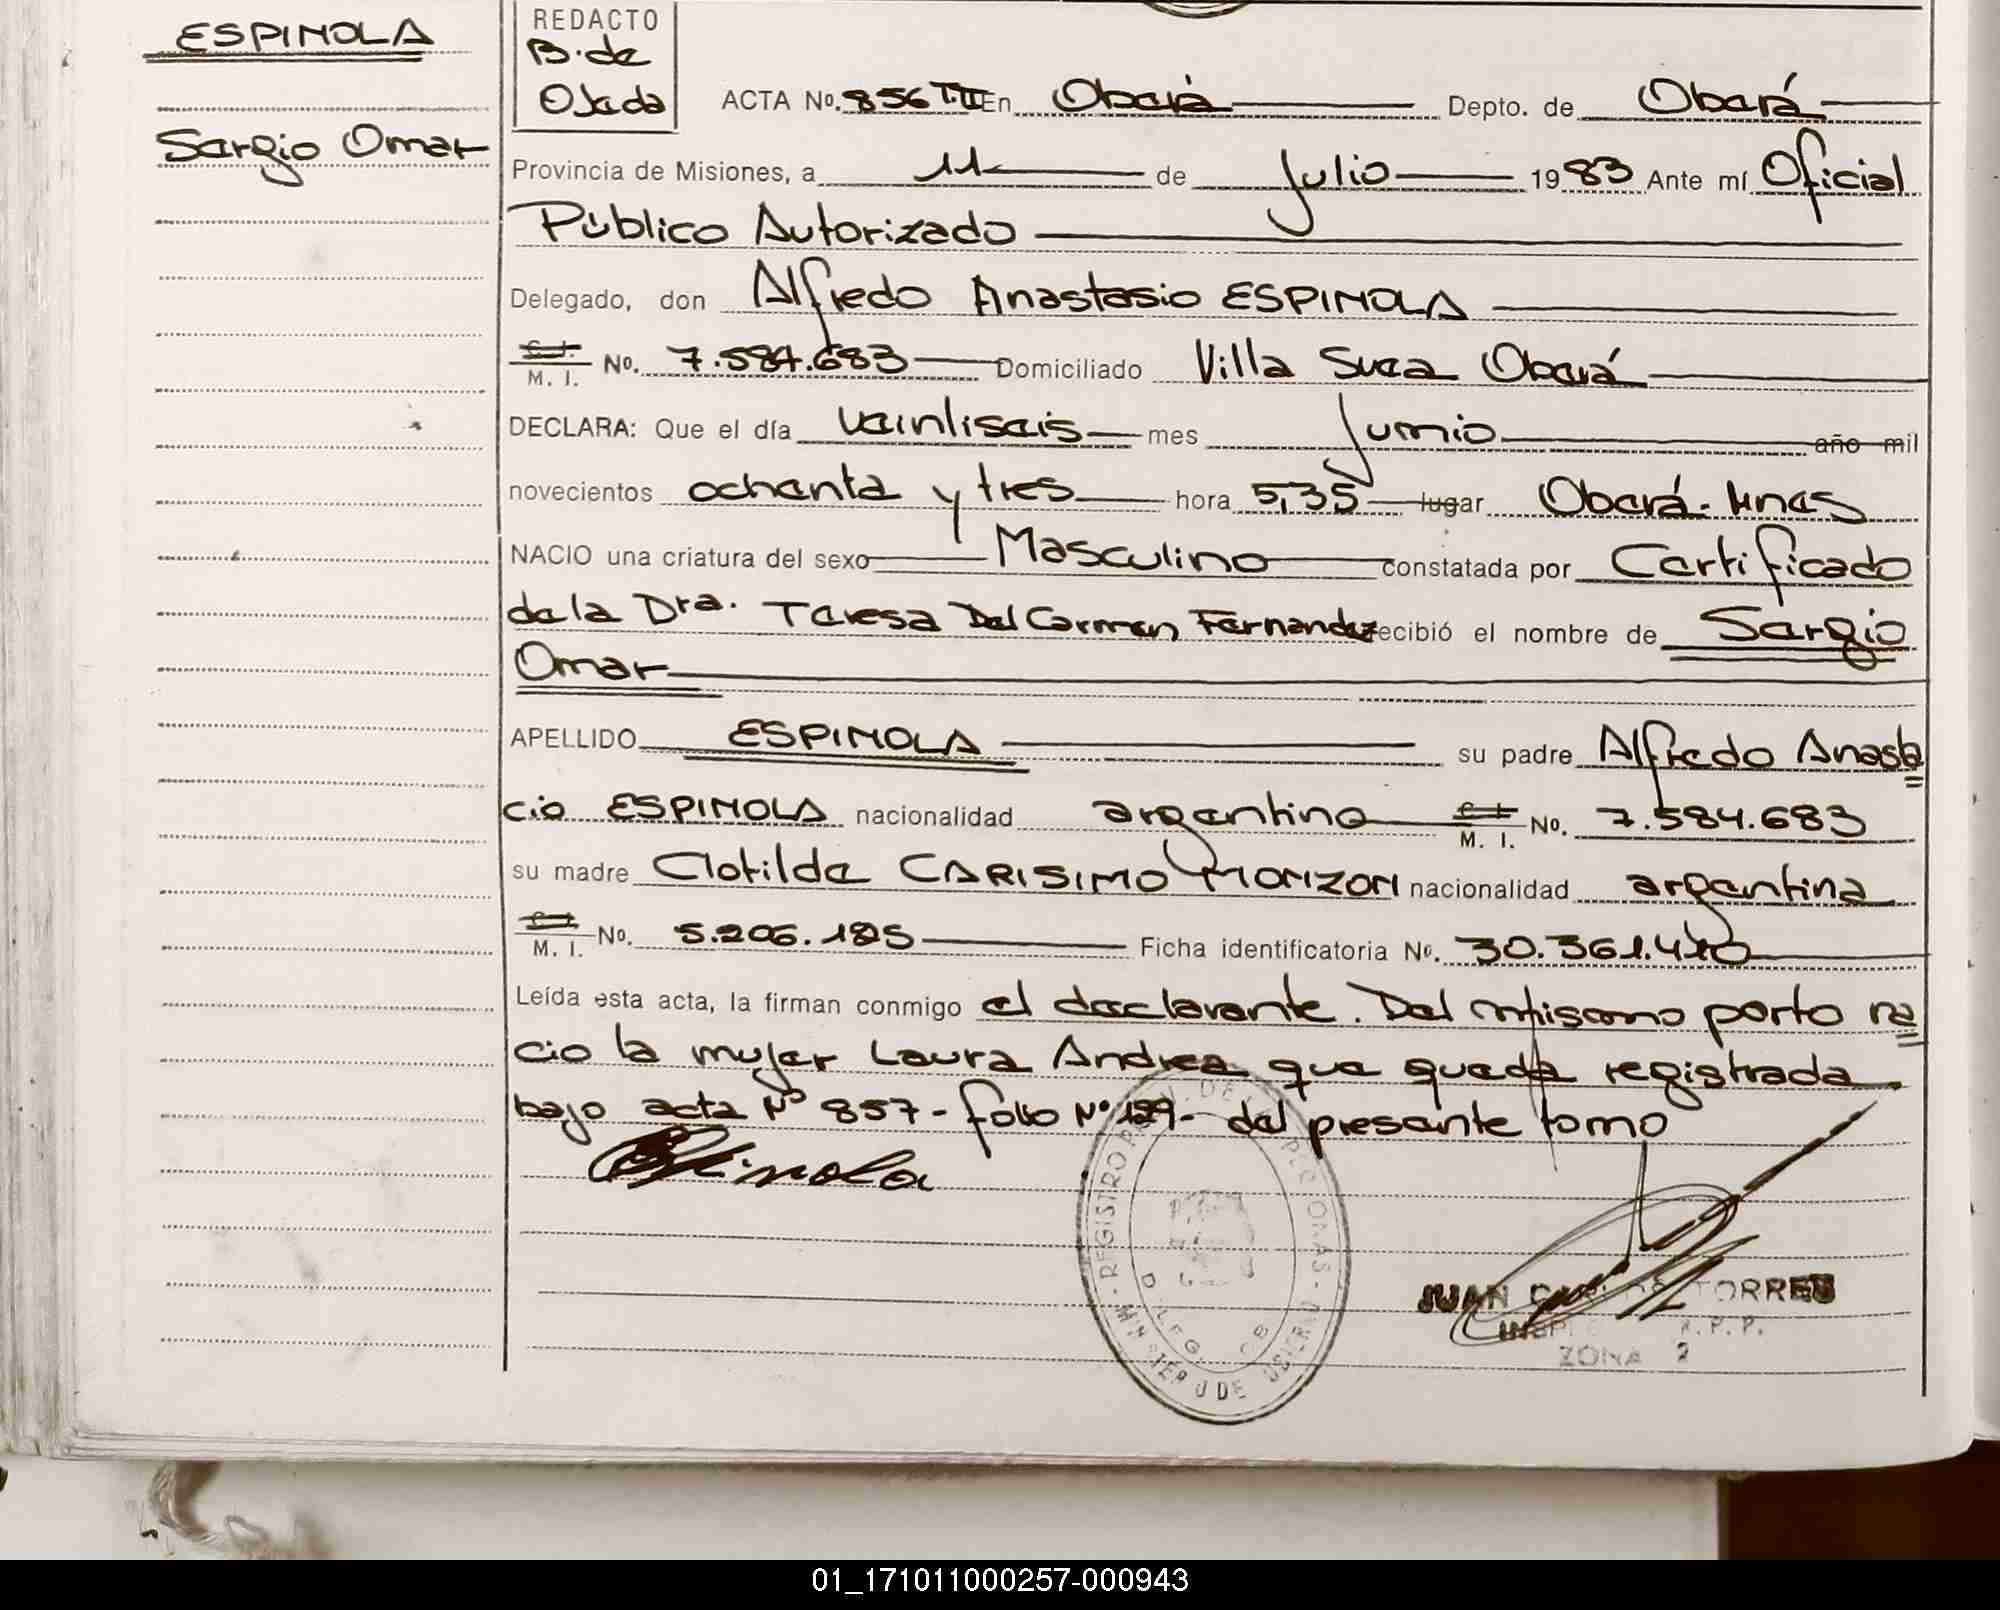 ESPINOLA
Sergio Omar
REDACTO
B. de
Ojeda
ACTA No. 856 T.II En Oberá Depto. de Oberá
Provincia de Misiones, a 11 de Julio 1983 Ante mí Oficial
Público Autorizado
Delegado, don Alfredo Anastasio ESPINOLA
M. I. No. 7.584.683 Domiciliado Villa Svea Oberá
DECLARA: Que el día veintiseis mes Junio año mil
novecientos ochenta y tres hora 5,35 lugar Oberá- Mnes
NACIO una criatura del sexo Masculino constatada por Certificado
de la Dra. Teresa Del Carmen Fernandez recibió el nombre de Sergio
Omar
APELLIDO ESPINOLA su padre Alfredo Anasta
cio ESPINOLA nacionalidad argentino M. I. No. 7.584.683
su madre Clotilde CARISIMO MONZON nacionalidad argentina
M. I. No. 5.206.185 Ficha identificatoria No. 30.361.410
Leída esta acta, la firman conmigo el declarante. Del mismo parto na
cio la mujer Laura Andrea que queda registrada
bajo acta Nº 857- folio Nº 129- del presente tomo
Espinola
REGISTRO DE LAS PERSONAS - MINISTERIO DE GOBIERNO
JUAN CARLOS TORRES
R.P.P.
ZONA 2
01_171011000257-000943